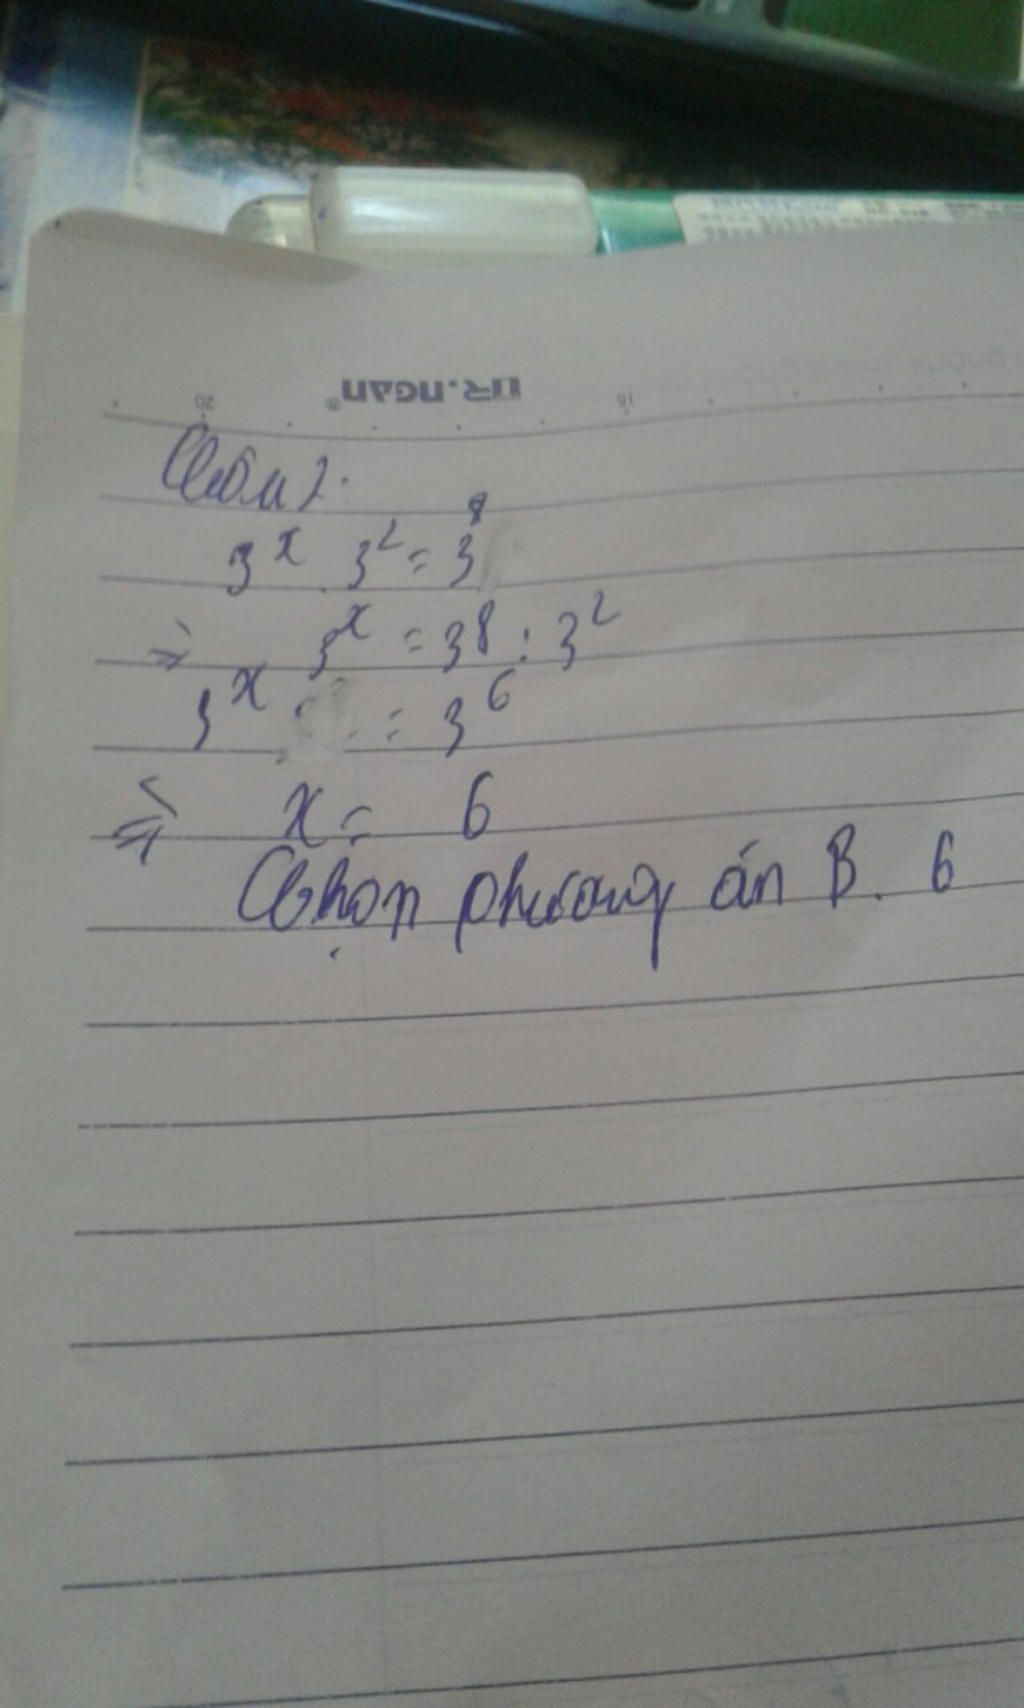 UR.NGAN®
20 15
Câu 2:
3^x . 3^2 = 3^8
⇒ 3^x = 3^8 : 3^2
3^x = 3^6
⇒ x = 6
Chọn phương án B. 6